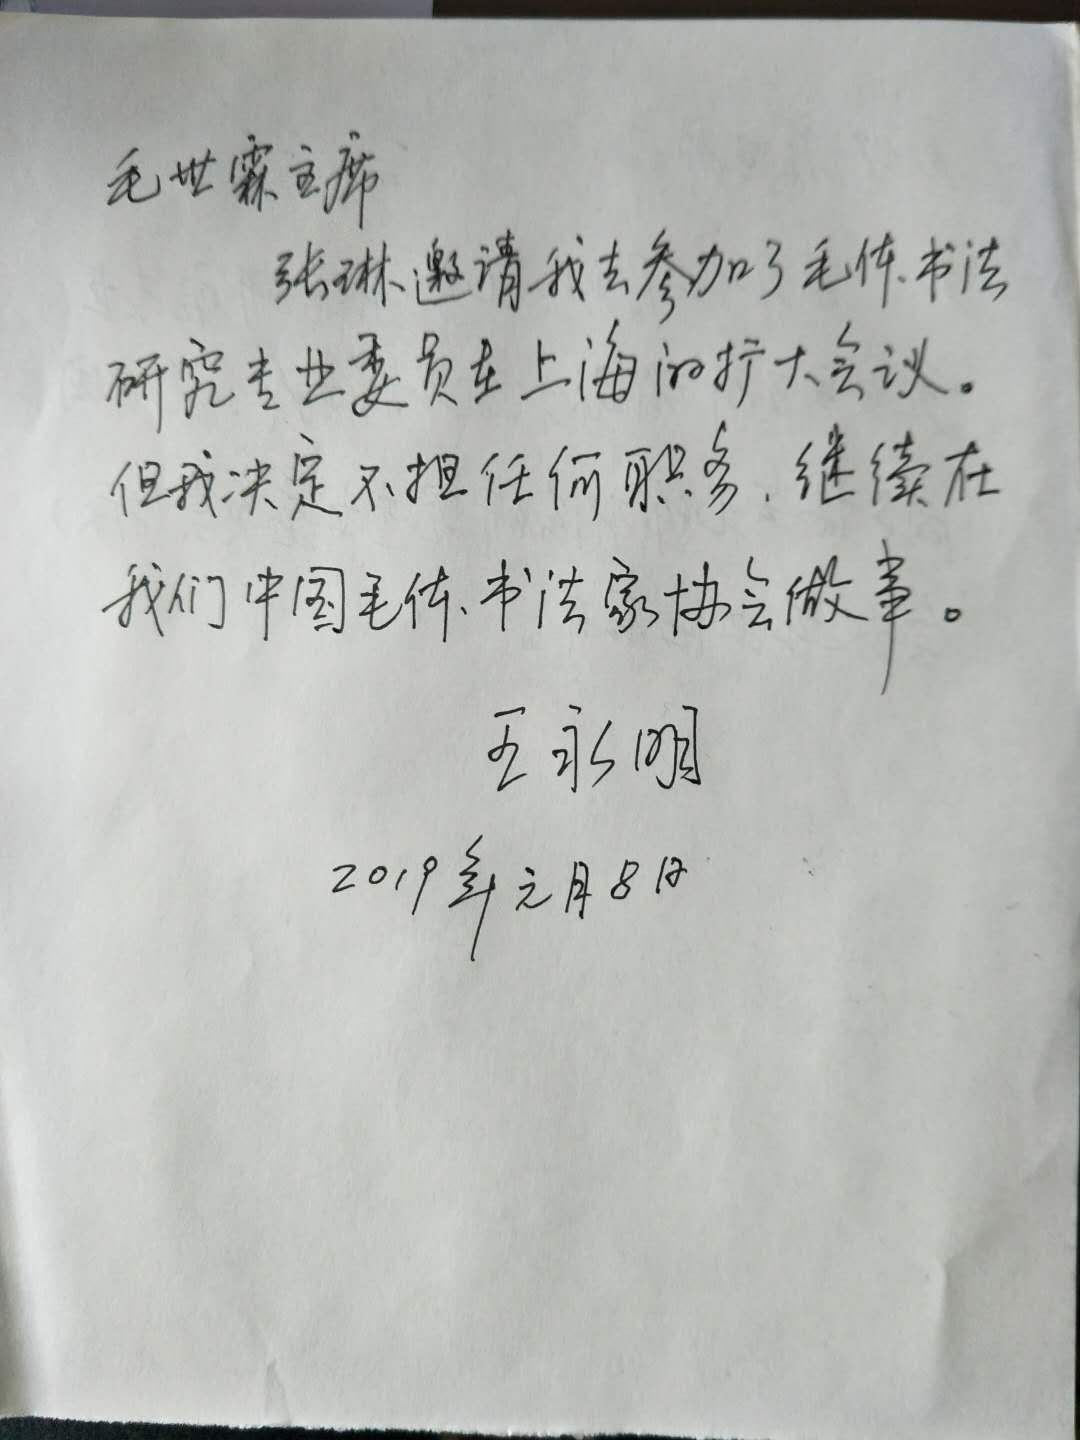 毛世霖主席
张琳邀请我去参加了毛体书法
研究专业委员在上海的扩大会议。
但我决定不担任何职务，继续在
我们中国毛体书法家协会做事。
王永明
2019年元月8日